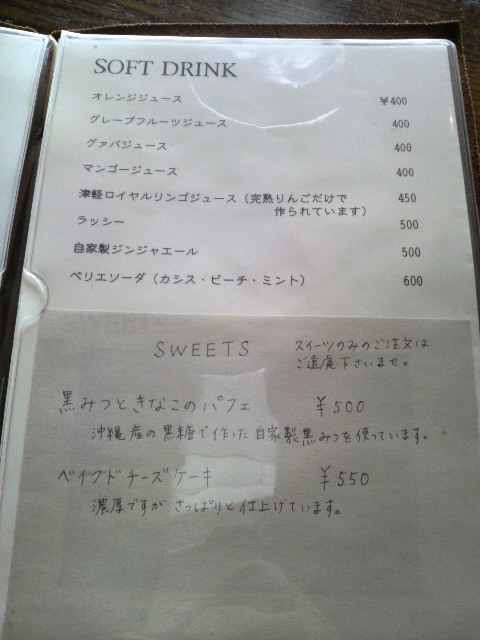 SOFT DRINK
オレンジジュース ￥400
グレープフルーツジュース 400
グァバジュース 400
マンゴージュース 400
津軽ロイヤルリンゴジュース（完熟りんごだけで 450
作られています）
ラッシー 500
自家製ジンジャエール 500
ペリエソーダ（カシス・ピーチ・ミント） 600
SWEETS スイーツのみのご注文は
ご遠慮下さいませ。
黒みつときなこのパフェ ￥500
沖縄産の黒糖で作った自家製黒みつを使っています。
ベイクドチーズケーキ ￥550
濃厚ですがさっぱりと仕上げています。